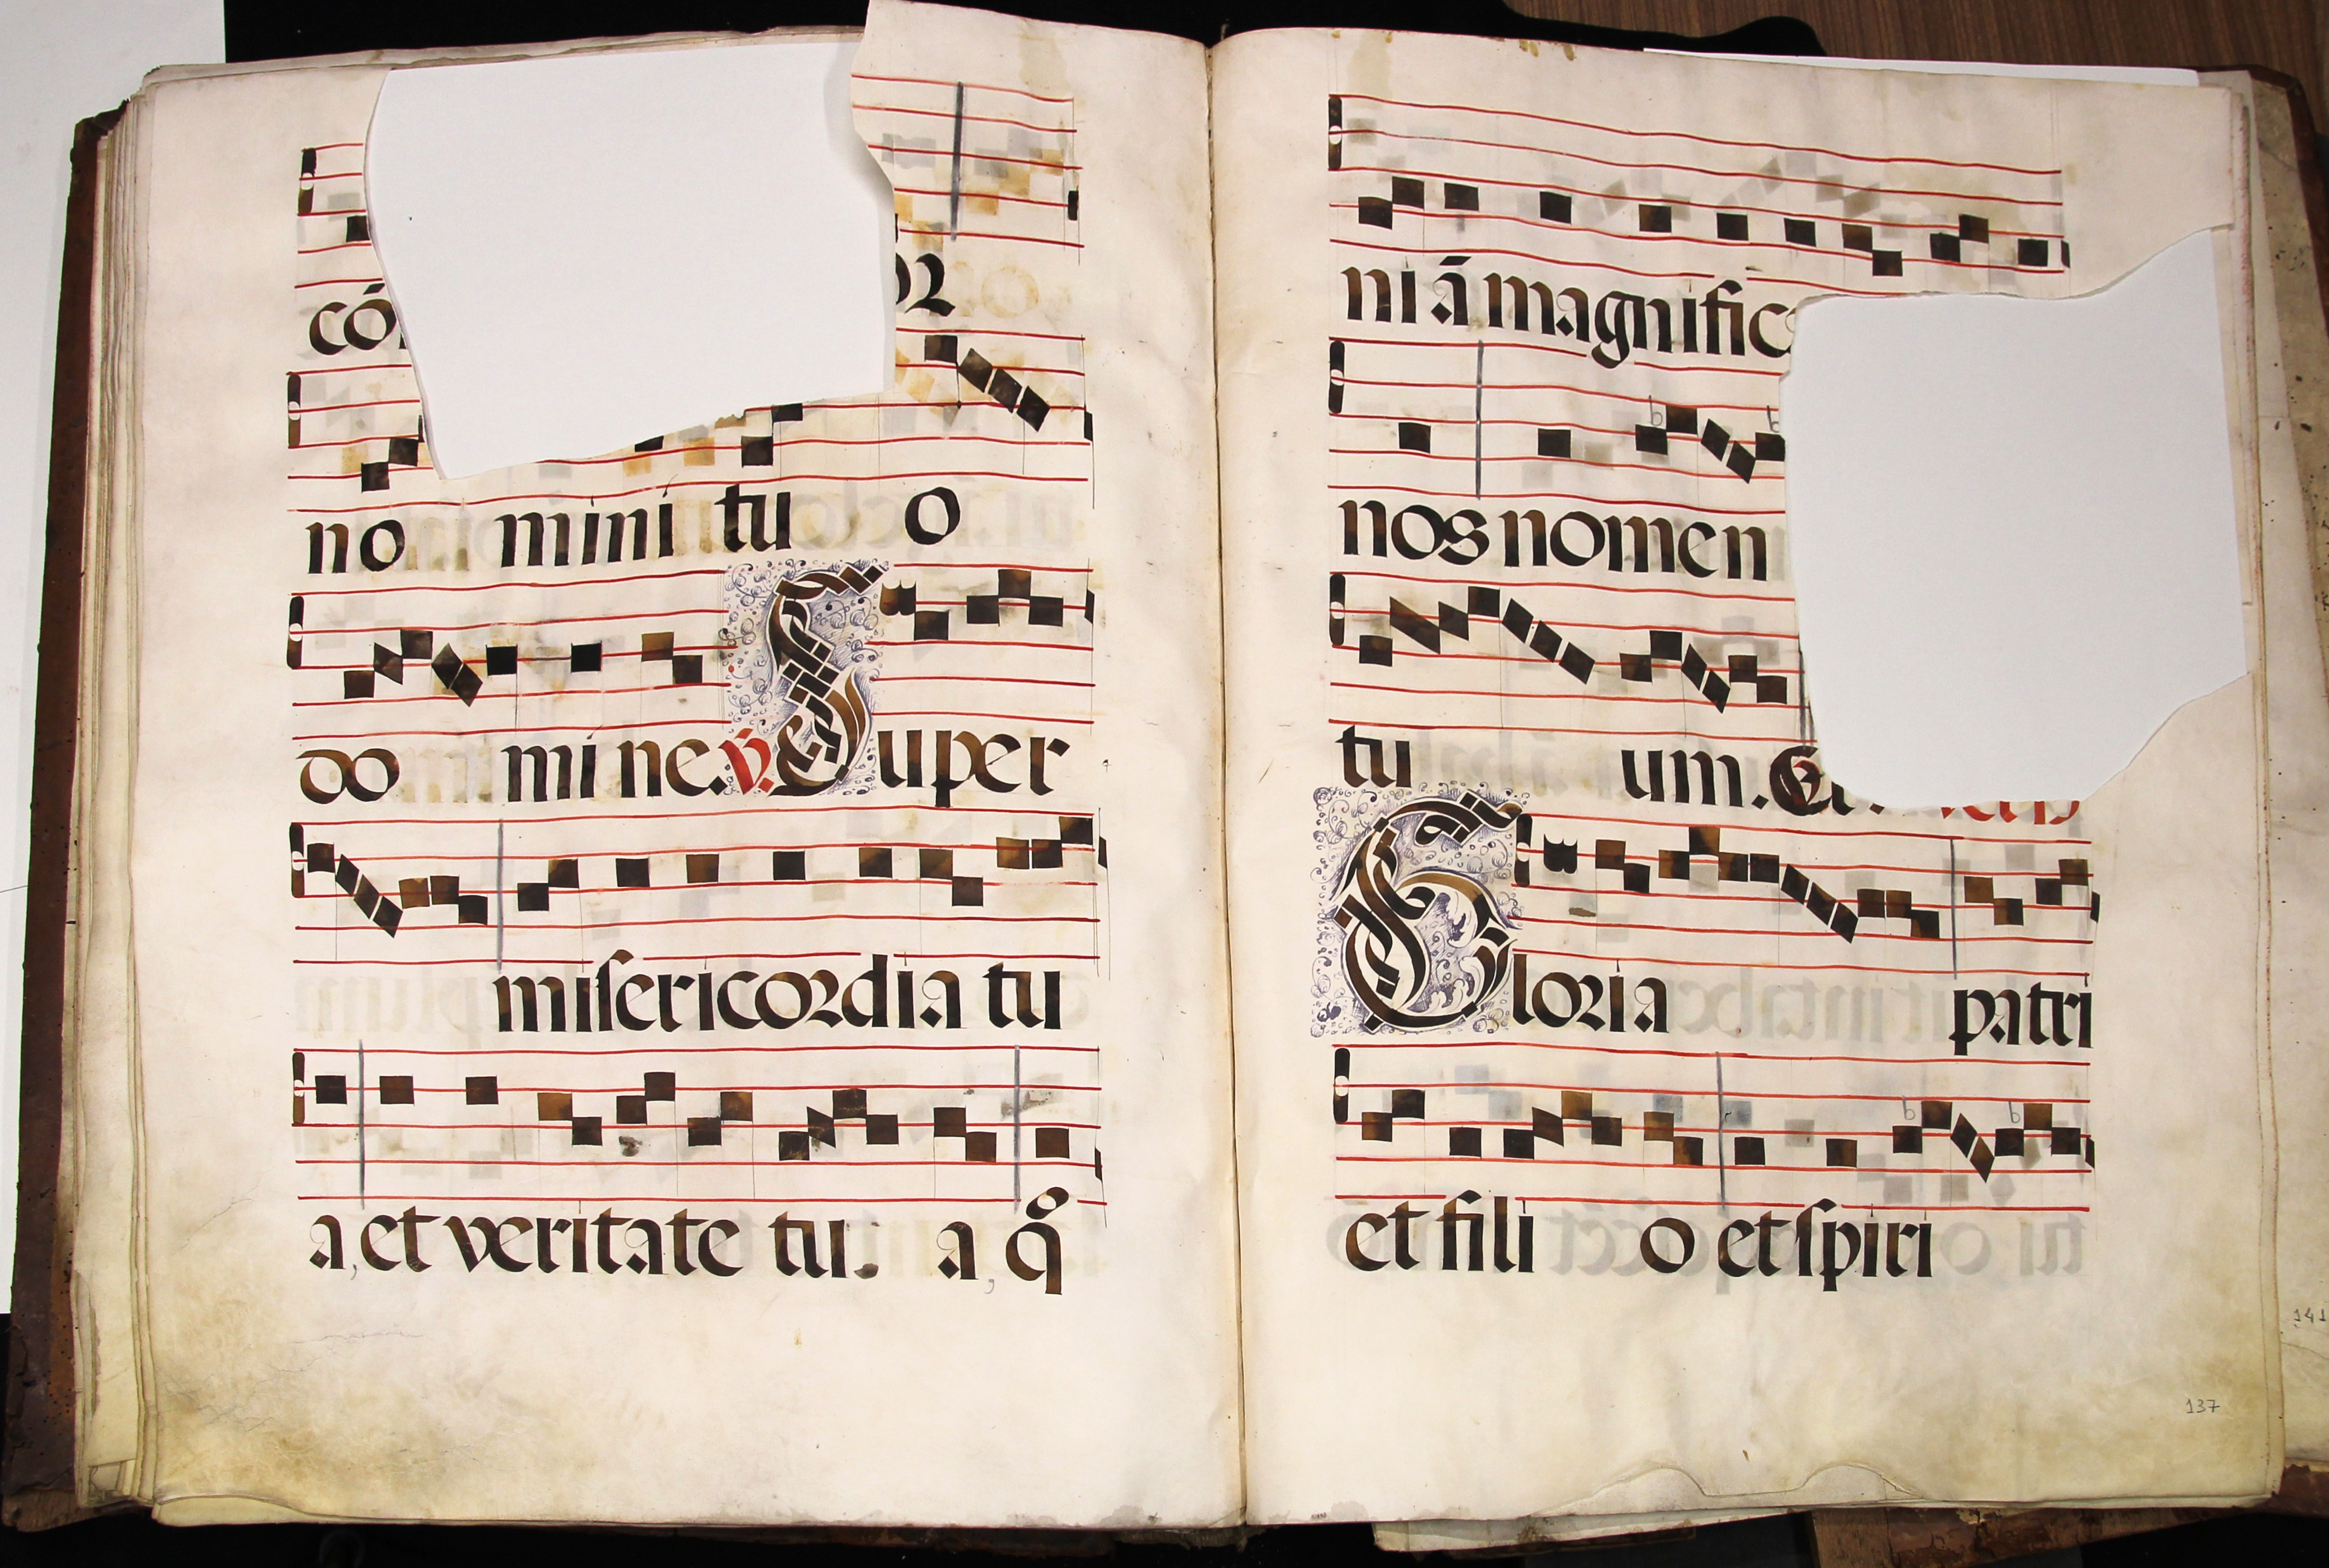 có
no mini tu o
do mi ne. v̄. Super
miſericordia tu
a, et veritate tu a, q̃
ni ā magnific
nos nomen
tu um.
Gloria patri
et fili o et ſpiri
137
141